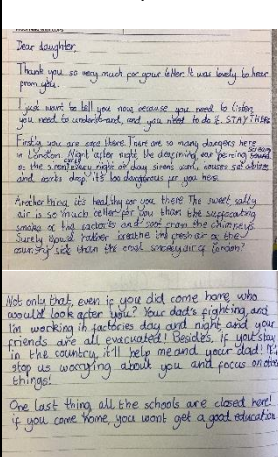 Dear daughter,
Thank you so very much for your letter. It was lovely to hear
from you.
I just want to tell you now because you need to listen,
you need to understand, and you need to do it. STAY THERE
Firstly you are safe there. There are so many dangers here
in London. Night after night the deafening ear piercing sound
of the siren night or day sirens wail, houses set ablaze
and bombs drop. It's too dangerous for you here.
Another thing its healthy for you there The sweet salty
air is so much better for you than the suffocating
smoke of the factories and soot from the chimneys
Surely you'd rather breathe in fresh air of the
country side than the air of London?
Not only that, even if you did come home, who
would look after you? Your dad's fighting, and
I'm working in factories day and night, and your
friends are all evacuated! Besides, if you stay
in the country, it'll help me and your dad! It'll
stop us worrying about you and focus on other
things!
One last thing, all the schools are closed here!
if you come home, you wont get a good education